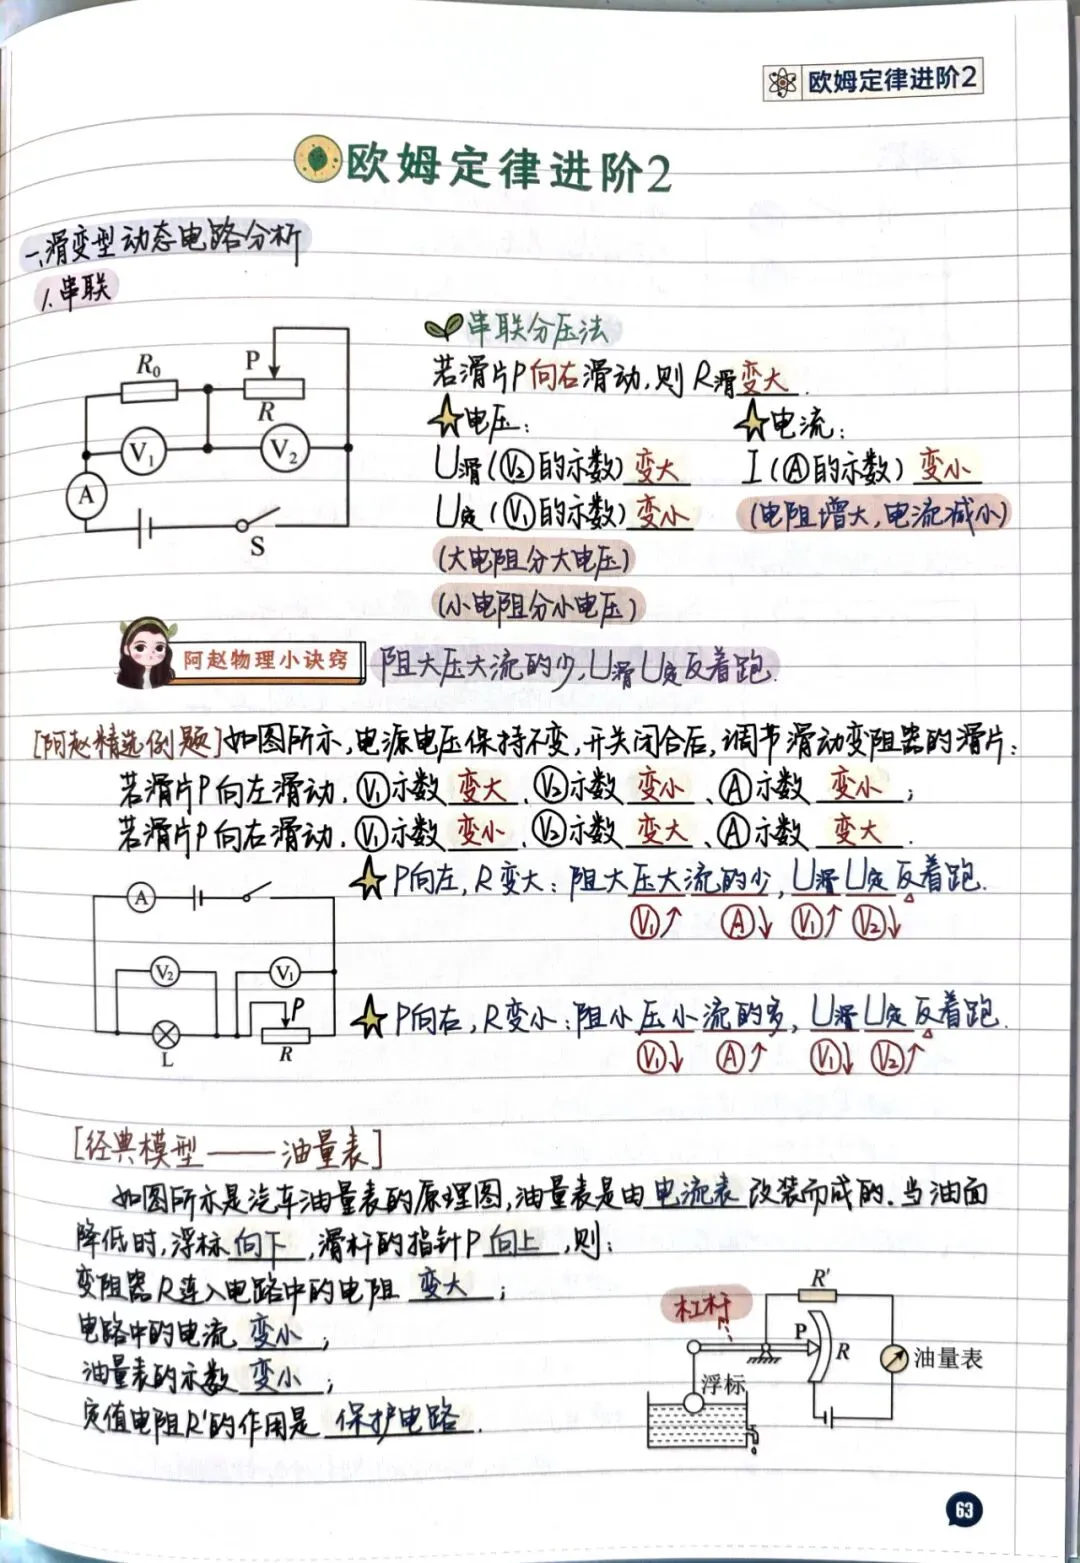 欧姆定律进阶2
欧姆定律进阶2
一、滑变型动态电路分析
1.串联
R₀ P R V₁ V₂ A S
串联分压法
若滑片P向右滑动,则R滑变大.
电压: 电流:
U滑(V₂的示数)变大 I(A的示数)变小
U定(V₁的示数)变小 (电阻增大,电流减小)
(大电阻分大电压)
(小电阻分小电压)
阿赵物理小诀窍 阻大压大流的少,U滑U定反着跑.
[阿赵精选例题]如图所示,电源电压保持不变,开关闭合后,调节滑动变阻器的滑片:
若滑片P向左滑动,V₁示数变大、V₂示数变小、A示数变小;
若滑片P向右滑动,V₁示数变小、V₂示数变大、A示数变大.
P向左,R变大:阻大压大流的少,U滑U定反着跑.
V₁↑ A↓ V₁↑ V₂↓
A V₂ V₁ P L R
P向右,R变小:阻小压小流的多,U滑U定反着跑.
V₁↓ A↑ V₁↓ V₂↑
[经典模型——油量表]
如图所示是汽车油量表的原理图,油量表是由电流表改装而成的.当油面
降低时,浮标向下,滑杆的指针P向上,则:
变阻器R连入电路中的电阻变大;
电路中的电流变小;
油量表的示数变小;
定值电阻R'的作用是保护电路.
杠杆 R' P R 油量表 浮标
63